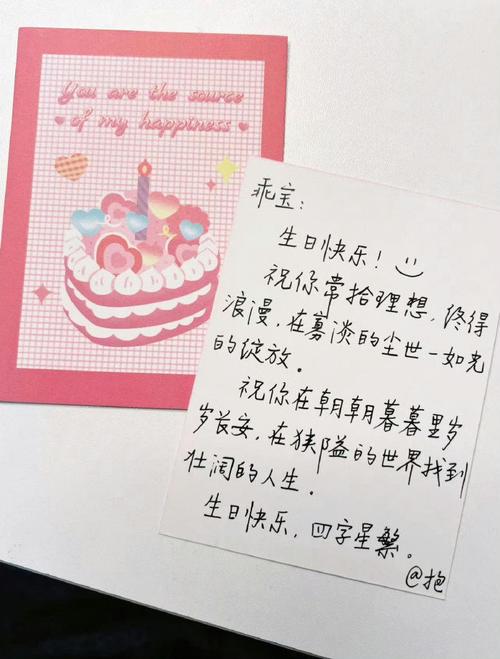 You are the source
of my happiness
乖宝：
生日快乐！
祝你常拾理想，终得
浪漫，在寡淡的尘世一如光
的绽放。
祝你在朝朝暮暮里岁
岁长安，在狭隘的世界找到
壮阔的人生。
生日快乐，四字星繁。
@抱